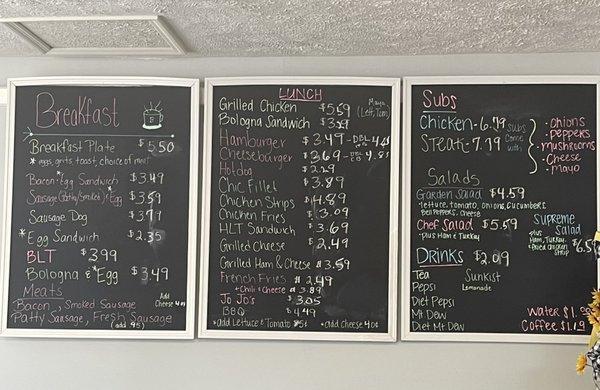 Breakfast
Breakfast Plate $5.50
*eggs, grits, toast, choice of meat
Bacon & Egg Sandwich $3.49
Sausage (Patty/Smoked) & Egg $3.59
Sausage Dog
*Egg Sandwich $2.35
BLT $3.99
Bologna & *Egg $3.49
Meats
Bacon, Smoked Sausage
Patty Sausage, Fresh Sausage
(add .95)
Add
Cheese 40¢
LUNCH
Grilled Chicken $5.59 Mayo (Lett, Tom)
Bologna Sandwich
Hamburger $3.47-DBL
Cheeseburger $3.69-DBL
Hotdog
Chic Fillet $3.89
Chicken Strips $4.89
Chicken Fries $3.09
HLT Sandwich $3.69
Grilled Cheese $2.49
Grilled Ham & Cheese $3.59
French Fries $2.49
+Chili & Cheese $3.89
Jo Jo's $3.05
BBQ $4.49
*add Lettuce & Tomato *add Cheese 40¢
Subs
Chicken-6.79
Steak-7.79
Subs
come
with:
•onions
•peppers
•mushrooms
•Cheese
•mayo
Salads
Garden Salad $4.59
•lettuce, tomato, onions, cucumbers
Bell Peppers, Cheese
Chef Salad $5.59
•Plus Ham & Turkey
Supreme
Salad
•plus
Ham, Turkey
•fried chicken
strip
Drinks $2.09
Tea
Pepsi
Diet Pepsi
Mt. Dew
Diet Mt Dew
Sunkist
Lemonade
Water
Coffee $1.19